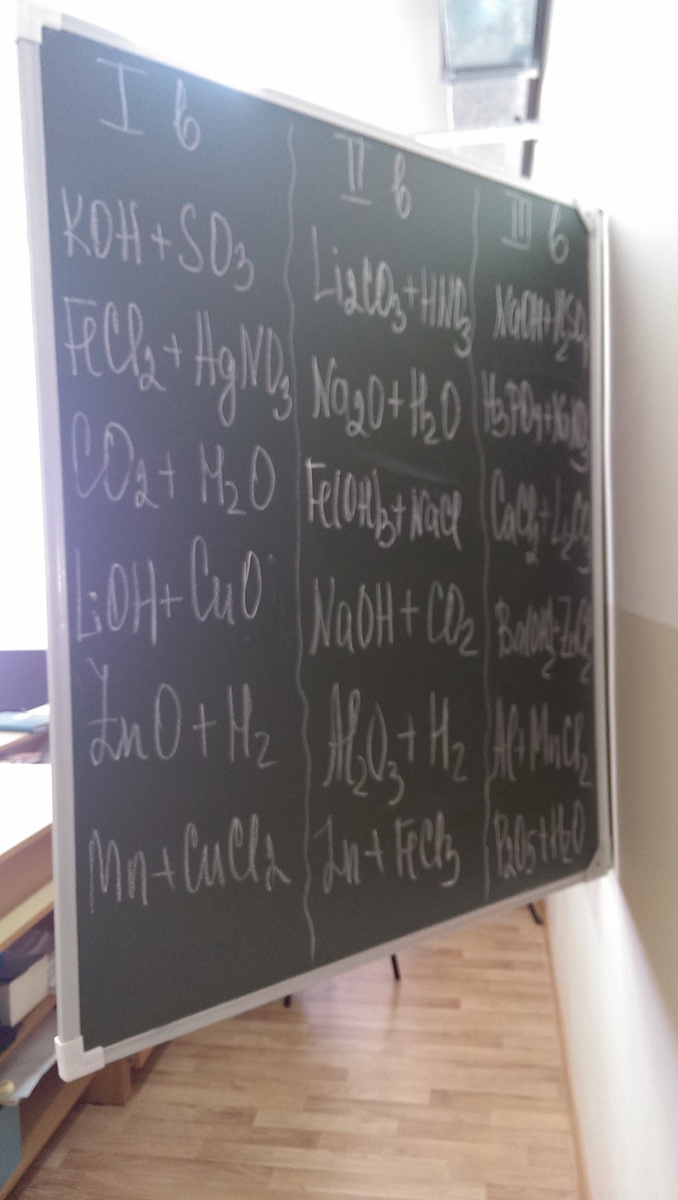 I в
KOH + SO3
FeCl2 + HgNO3
CO2 + H2O
LiOH + CuO
ZnO + H2
Mn + CuCl2
II в
Li2CO3 + HNO3
Na2O + H2O
Fe(OH)3 + NaCl
NaOH + CO2
Al2O3 + H2
Zn + FeCl3
III в
NaOH + H2SO4
H3PO4 + NaNO3
CaCl2 + Li2CO3
Ba(OH)2 + ZnCl2
Al + MnCl2
P2O5 + H2O